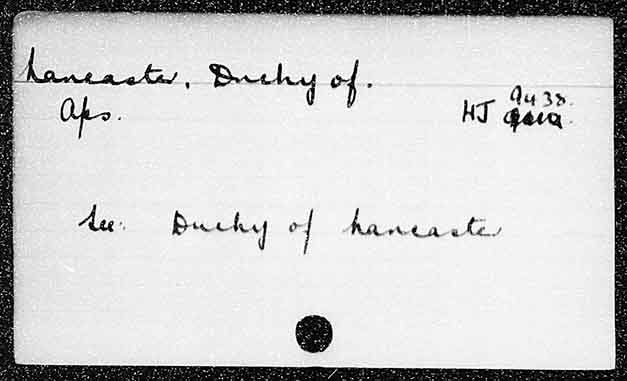 Lancaster, Duchy of.
Aps. HJ 9438.
See: Duchy of Lancaster